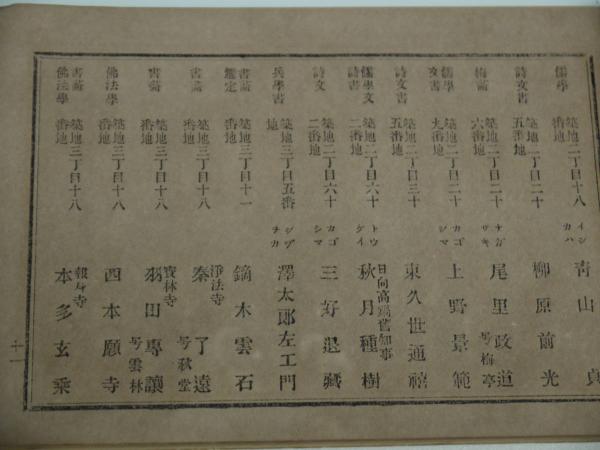 儒學 築地二丁目十八番地 イシカハ 青山 貞
詩文書 築地二丁目二十五番地 柳原前光
梅畵 築地二丁目二十六番地 ナガサキ 尾里政道 号梅亭
儒學文書 築地二丁目二十九番地 カゴシマ 上野景範
詩文書 築地二丁目三十五番地 東久世通禧
儒學文詩書 築地二丁目六十二番地 トウケイ 日向高鍋舊知事 秋月種樹
詩文 築地二丁目六十二番地 カゴシマ 三好退藏
兵學書 築地三丁目五番地 シヅヲカ 澤太郎左エ門
書畵鑑定 築地三丁目十一番地 鏑木雲石
書畵 築地三丁目十八番地 淨法寺 秦 了遠 号秋堂
書畵 築地三丁目十八番地 寶林寺 羽田專讓 号雲林
佛法學 築地三丁目十八番地 西本願寺
書畵佛法學 築地三丁目十八番地 報身寺 本多玄乘
十一